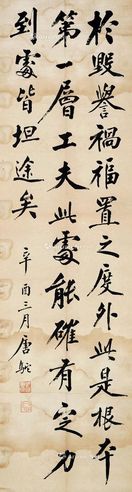 於毀譽禍福置之度外此是根本
第一層工夫此處能確有定力
到處皆坦途矣
辛酉三月唐駝